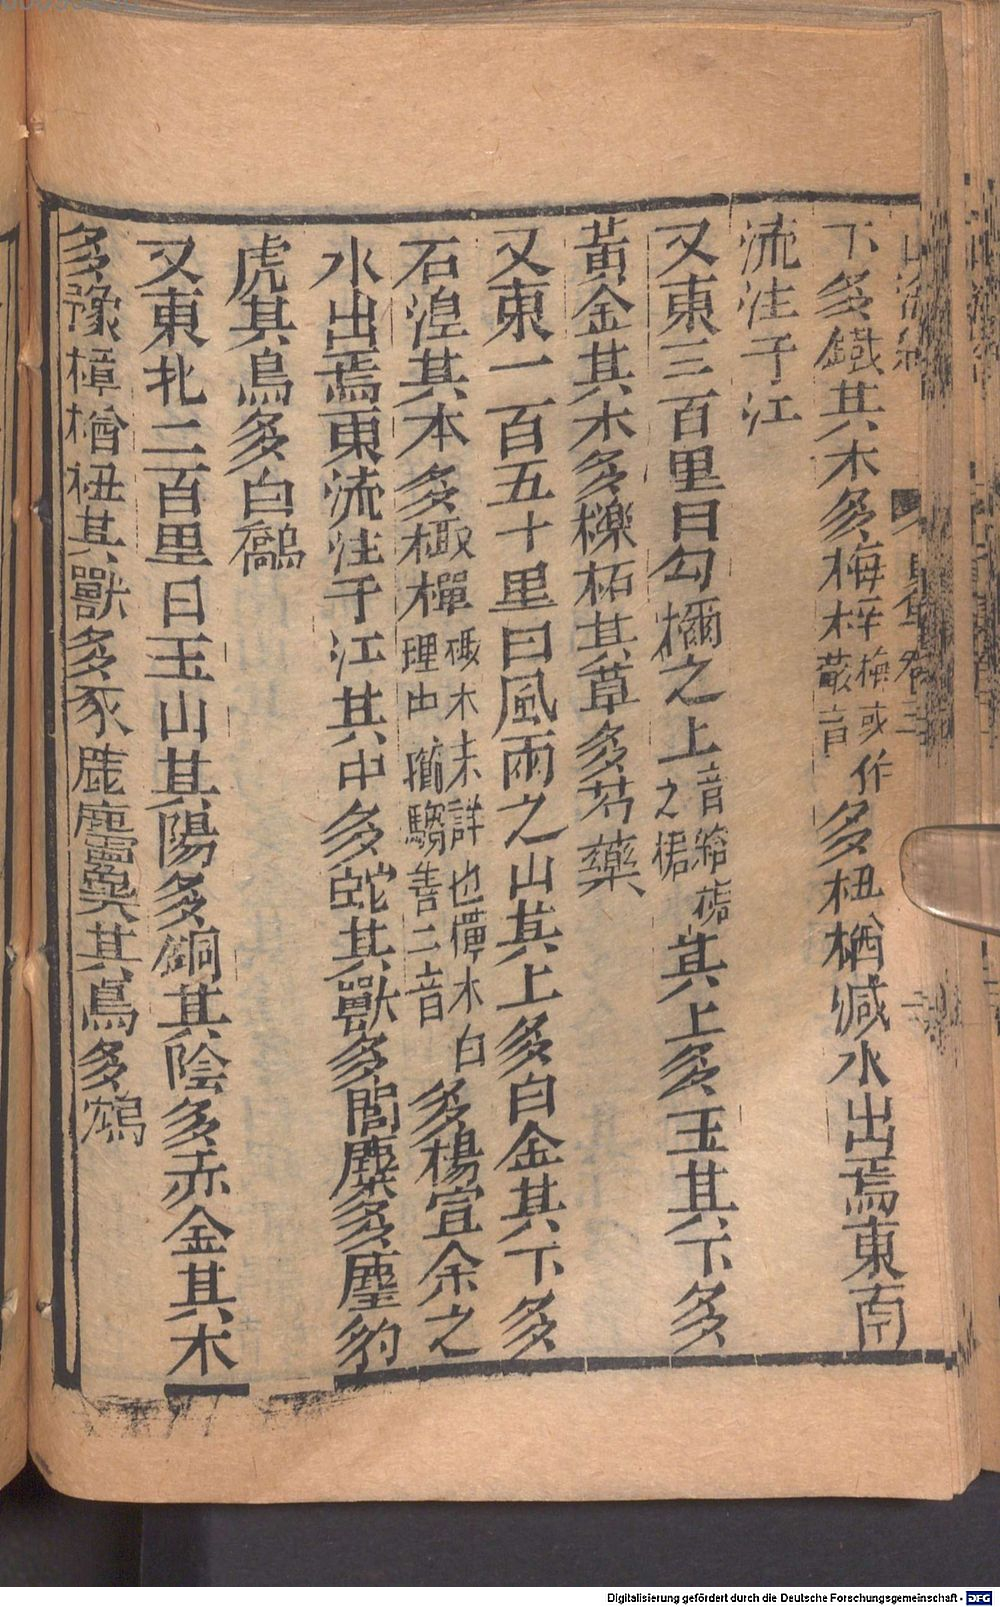 下多鐵其木多梅梓梅或作𣞶音多杻楢減水出焉東南
流注于江
又東三百里曰勾檷之上音絡椐之椐其上多玉其下多
黃金其木多櫟柘其草多芍藥
又東一百五十里曰風雨之山其上多白金其下多
石湼其本多棷樿棷木未詳也樿木白理中櫛騶善二音多楊宣余之
水出焉東流注于江其中多蛇其獸多閭麋多麈豹
虎其鳥多白鷮
又東北二百里曰玉山其陽多銅其陰多赤金其木
多豫樟楢杻其獸多豕鹿麢㚟其鳥多鴆
Digitalisierung gefördert durch die Deutsche Forschungsgemeinschaft - DFG